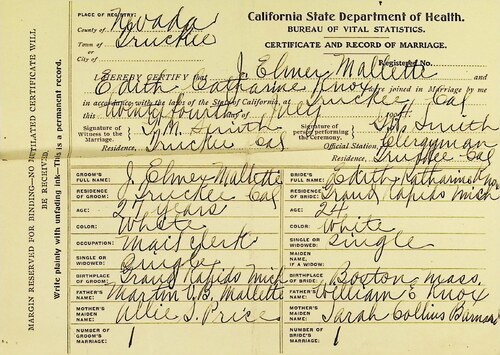 PLACE OF REGISTRY:
California State Department of Health.
BUREAU OF VITAL STATISTICS.
CERTIFICATE AND RECORD OF MARRIAGE.
County of Nevada
Town of Truckee
or
City of
Registered No.
I HEREBY CERTIFY that J. Elmer Mallette and
Edith Catharine Knox were joined in Marriage by me
in accordance with the laws of the State of California, at Truckee Cal
this twenty fourth day of July
Signature of Witness to the Marriage. Smith
Residence, Truckee Cal
Signature of person performing the Ceremony. Smith
Official Station, Clergyman
Residence, Truckee Cal
GROOM'S FULL NAME: J. Elmer Mallette
RESIDENCE OF GROOM: Truckee Cal
AGE: 27 years
COLOR: White
OCCUPATION: Mail clerk
SINGLE OR WIDOWED: Single
BIRTHPLACE OF GROOM: Grand Rapids Mich
FATHER'S NAME: Martin V.B. Mallette
MOTHER'S MAIDEN NAME: Allie I. Price
NUMBER OF GROOM'S MARRIAGE: 1
BRIDE'S FULL NAME: Edith Katharine Knox
RESIDENCE OF BRIDE: Grand Rapids Mich
AGE: 24
COLOR: White
SINGLE OR WIDOWED: Single
MAIDEN NAME, IF A WIDOW:
BIRTHPLACE OF BRIDE: Boston Mass.
FATHER'S NAME: William E Knox
MOTHER'S MAIDEN NAME: Sarah Collins
NUMBER OF BRIDE'S MARRIAGE: 1
MARGIN RESERVED FOR BINDING—NO MUTILATED CERTIFICATE WILL BE RECEIVED.
Write plainly with unfading ink—this is a permanent record.